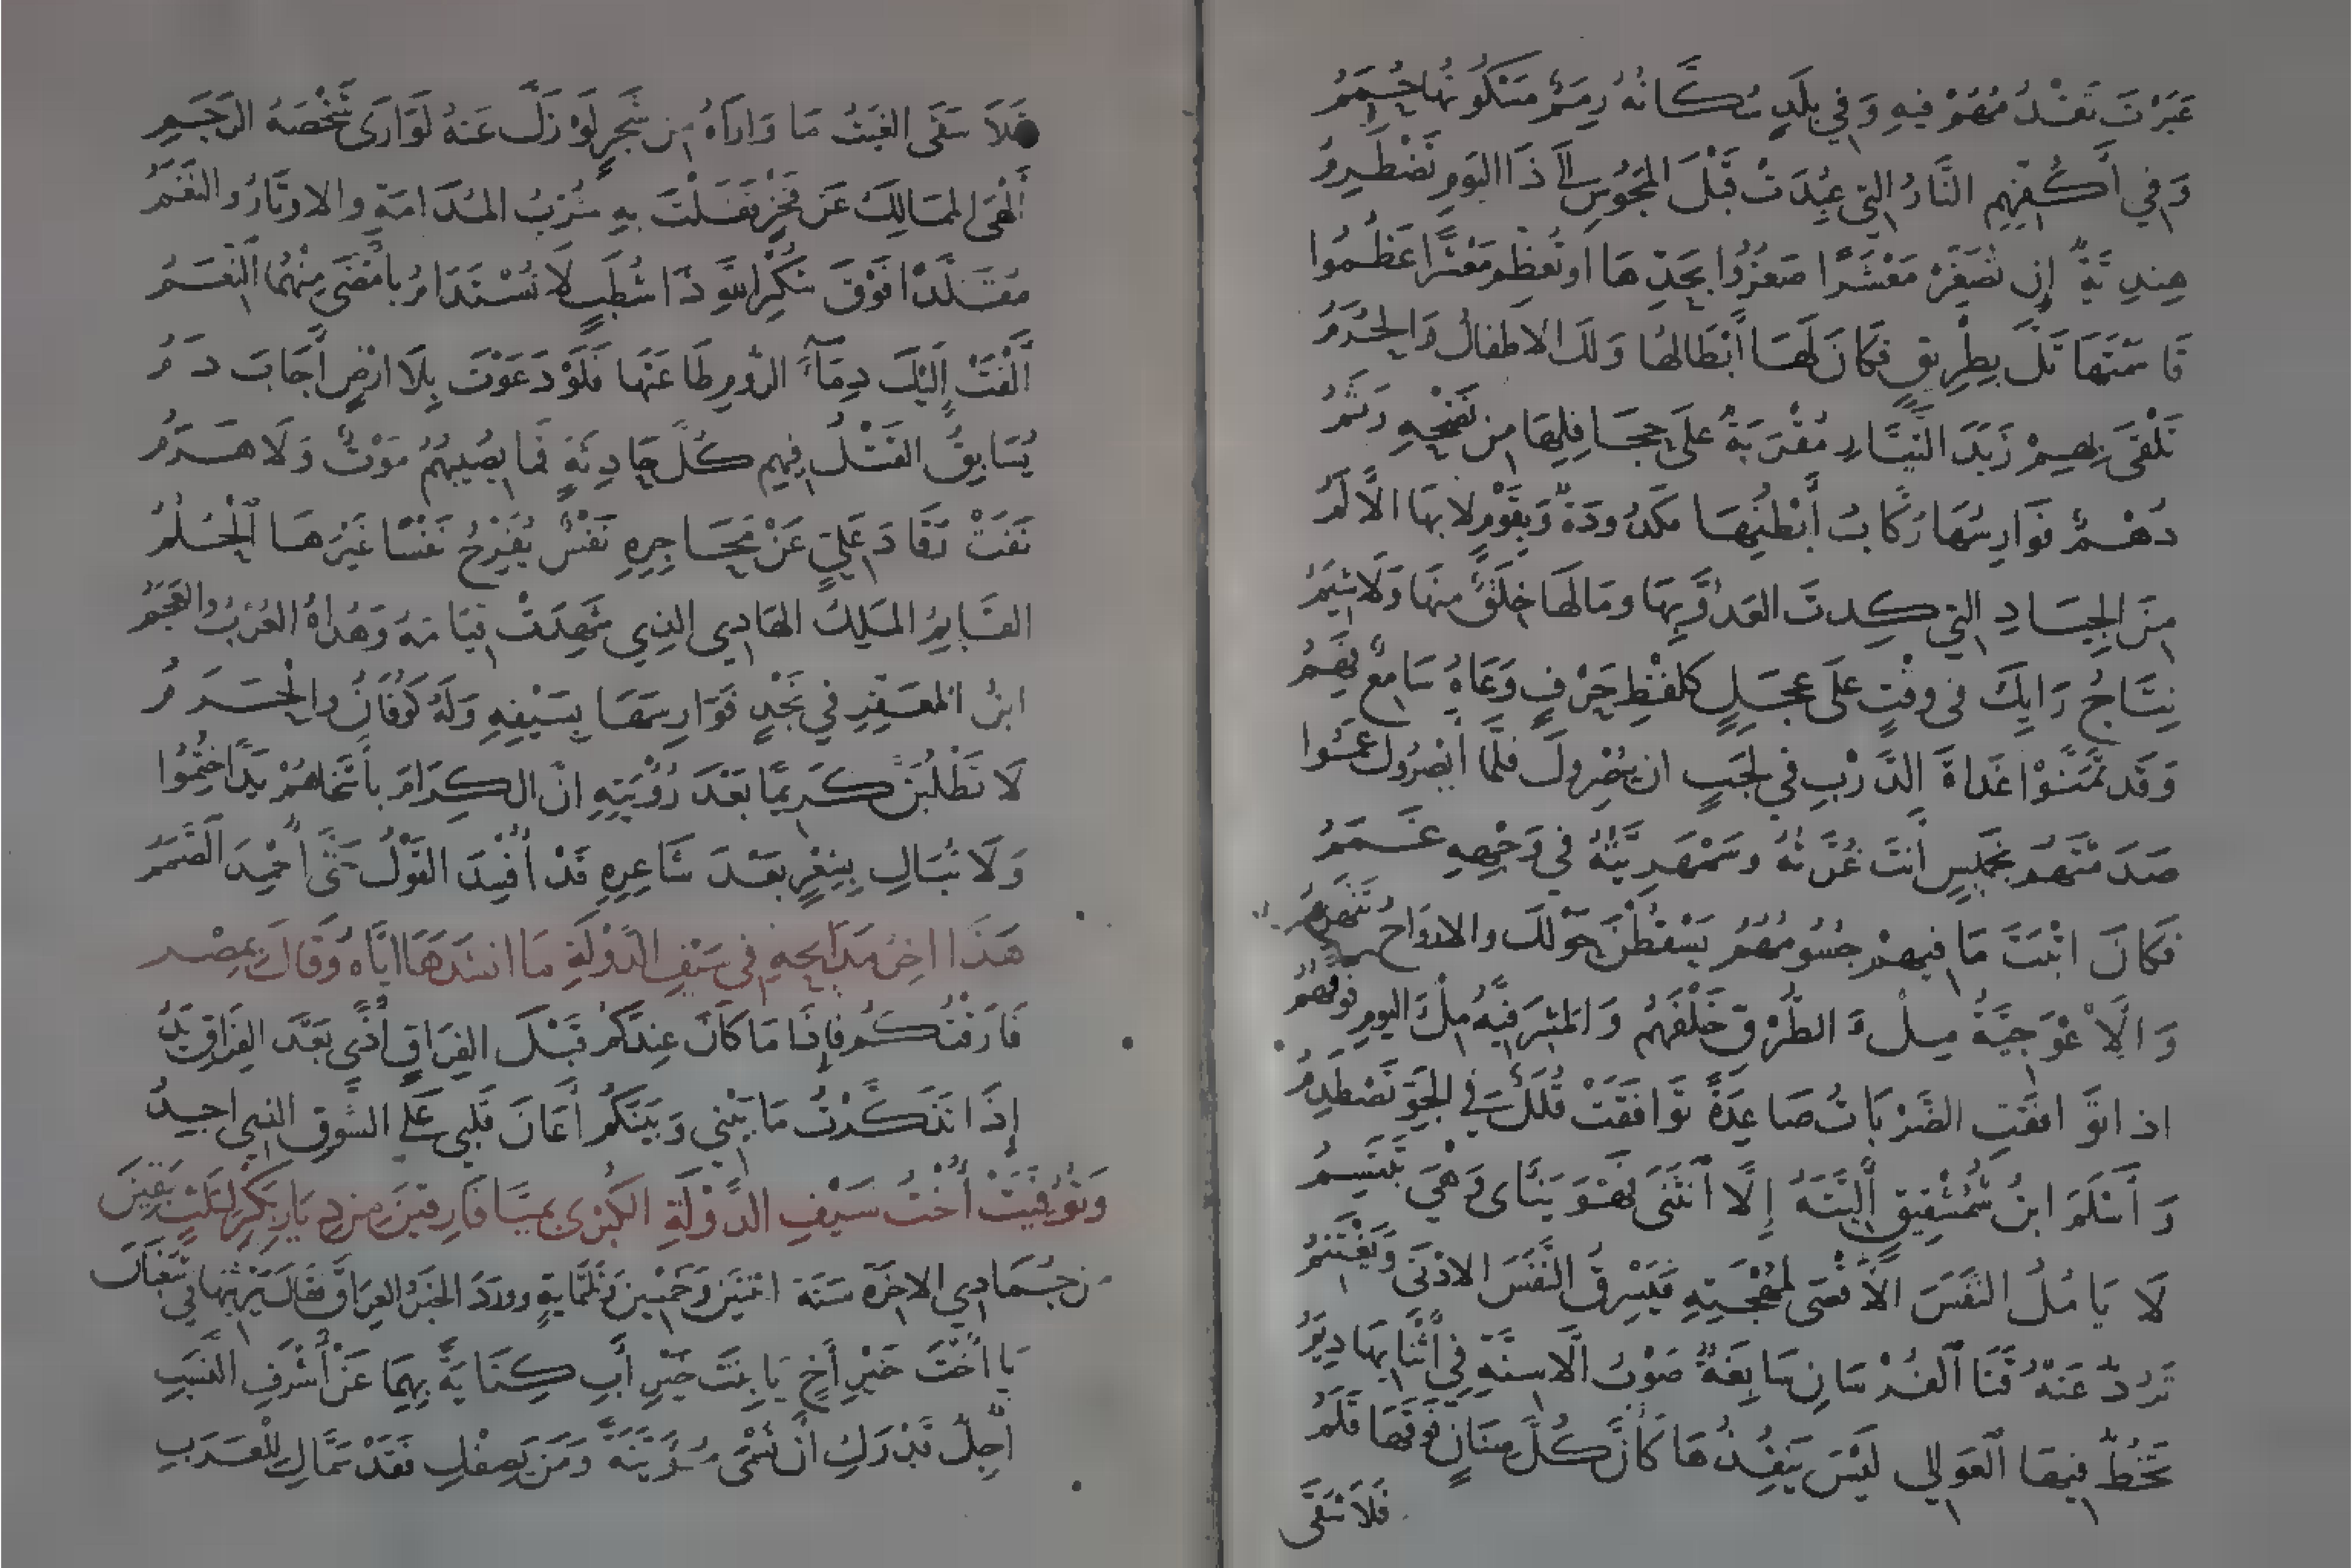 عَبَرْتَ تَقْدُمُهُمْ فِيهِ وَفِي بَلَدٍ سُكَّانُهُ رِمَمٌ مَسْكُونُهَا حُمَمُ
وَفِي أَكُفِّهِمِ النَّارُ الَّتِي عُبِدَتْ قَبْلَ المَجُوسِ إِلَى ذَا اليَوْمِ تَضْطَرِمُ
هِنْدِيَّةٌ إِنْ تُصَغِّرْ مَعْشَرًا صَغُرُوا بِحَدِّهَا أَوْ تُعَظِّمْ مَعْشَرًا عَظُمُوا
قَاسَمْتَهَا تَلَّ بِطْرِيقٍ فَكَانَ لَهَا أَبْطَالُهَا وَلَكَ الاطْفَالُ وَالحُرَمُ
تَلْقَى بِهِمْ زَبَدَ التَّيَّارِ مُقْرَبَةٌ عَلَى جَحَافِلِهَا مِنْ نَضْحِهِ رَثَمُ
دُهْمٌ فَوَارِسُهَا رُكَّابُ أَبْطُنِهَا مَكْدُودَةٌ وَبِقَوْمٍ لا بِهَا الأَلَمُ
مِنَ الجِيَادِ الَّتِي كِدْتَ العَدُوَّ بِهَا وَمَا لَهَا خِلَقٌ مِنْهَا وَلَا شِيَمُ
نِتَاجُ رَايِكَ فِي وَقْتٍ عَلَى عَجَلٍ كَلَفْظِ حَرْفٍ وَعَاهُ سَامِعٌ فَهِمُ
وَقَدْ تَمَنَّوْا غَدَاةَ الدَّرْبِ فِي لَجَبٍ ان يُبْصِرُوكَ فَلَمَّا أَبْصَرُوكَ عَمُوا
صَدَمْتَهُمْ بِخَمِيسٍ أَنْتَ غُرَّتُهُ وَسَمْهَرِيَّتُهُ فِي وَجْهِهِ غَمَمُ
فَكَانَ اثْبَتَ مَا فِيهِمْ جُسُومُهُمُ يَسْقُطْنَ حَوْلَكَ وَالارْوَاحُ تَنْهَزِمُ
وَالأَعْوَجِيَّةُ مِلْءَ الطُّرْقِ خَلْفَهُمُ وَالمَشْرَفِيَّةُ مِلْءَ اليَوْمِ فَوْقَهُمُ
اذا تَوَافَقَتِ الضَّرْبَاتُ صَاعِدَةً تَوَافَقَتْ قُلَلٌ فِي الجَوِّ تَصْطَدِمُ
وَأَسْلَمَ ابْنُ شُمُشْقِيقٍ أَلِيَّتَهُ إِلَّا انْثَنَى فَهْوَ يَنْأَى وَهْيَ تَبْتَسِمُ
لَا يَامُلُ النَّفَسَ الأَقْصَى لِمُهْجَتِهِ فَيَسْرِقُ النَّفَسَ الادْنَى وَيَغْتَنِمُ
تَرُدُّ عَنْهُ قَنَا الفُرْسَانِ سَابِغَةٌ صَوْبُ الأَسِنَّةِ فِي أَثْنَائِهَا دِيَمُ
تَخُطُّ فِيهَا العَوَالِي لَيْسَ يَنْفُذُهَا كَأَنَّ كُلَّ سِنَانٍ فَوْقَهَا قَلَمُ
فَلَا سَقَى
فَلَا سَقَى الغَيْثُ مَا وَارَاهُ مِنْ شَجَرٍ لَوْ زَلَّ عَنْهُ لَوَارَى شَخْصَهُ الرَّخَمُ
أَلْهَى المَمَالِكَ عَنْ فَخْرٍ قَفَلْتَ بِهِ شُرْبُ المُدَامَةِ وَالاوْتَارُ وَالنَّغَمُ
مُقَلَّدًا فَوْقَ شُكْرِ اللهِ ذَا شُطَبٍ لَا تُسْتَدَامُ بِأَمْضَى مِنْهُمَا النِّعَمُ
أَلْقَتْ إِلَيْكَ دِمَاءُ الرُّومِ طَاعَتَهَا فَلَوْ دَعَوْتَ بِلَا ضَرْبٍ أَجَابَ دَمُ
يُسَابِقُ القَتْلُ فِيهِمْ كُلَّ حَادِثَةٍ فَمَا يُصِيبُهُمُ مَوْتٌ وَلَا هَرَمُ
نَفَتْ رُقَادَ عَلِيٍّ عَنْ مَحَاجِرِهِ نَفْسٌ يُفَرِّحُ نَفْسًا غَيْرَهَا الحُلُمُ
القَايِمُ المَلِكُ الهَادِي الَّذِي شَهِدَتْ قِيَامَهُ وَهُدَاهُ العُرْبُ وَالعَجَمُ
ابْنُ المُعَفِّرِ فِي نَجْدٍ فَوَارِسَهَا بِسَيْفِهِ وَلَهُ كُوفَانُ وَالحَرَمُ
لَا تَطْلُبَنَّ كَرِيمًا بَعْدَ رُؤْيَتِهِ انَّ الكِرَامَ بِأَسْخَاهُمْ يَدًا خُتِمُوا
وَلَا تُبَالِ بِشِعْرٍ بَعْدَ شَاعِرِهِ قَدْ أُفْسِدَ القَوْلُ حَتَّى أُحْمِدَ الصَّمَمُ
هَذَا اخِرُ مَدَايِحِهِ فِي سَيْفِ الدَّوْلَةِ مَا انْشَدَهَا ايَّاهُ وَقَالَ بِمِصْرَ
فَارَقْتُكُمْ فَإِذَا مَا كَانَ عِنْدَكُمُ قَبْلَ الفِرَاقِ أَذًى بَعْدَ الفِرَاقِ يَدُ
إِذَا تَذَكَّرْتُ مَا بَيْنِي وَبَيْنَكُمُ أَعَانَ قَلْبِي عَلَى الشَّوْقِ الَّذِي اجِدُ
وَتُوُفِّيَتْ أُخْتُ سَيْفِ الدَّوْلَةِ الكُبْرَى بِمَيَّافَارِقِينَ مِنْ دِيَارِ بَكْرٍ لِثَلَثٍ بَقِينَ
مِنْ جُمَادِي الاخِرَةِ سَنَةَ اثْنَيْنِ وَخَمْسِينَ وَثَلَثَمَايَةٍ وَوَرَدَ الخَبَرُ العِرَاقَ فَقَالَ يَرْثِيهَا فِي شَعْبَانَ
يَا أُخْتَ خَيْرِ أَخٍ يَا بِنْتَ خَيْرِ أَبٍ كِنَايَةً بِهِمَا عَنْ أَشْرَفِ النَّسَبِ
أُجِلُّ قَدْرَكِ أَنْ تُسْمَيْ مُؤَبَّنَةً وَمَنْ يَصِفْكِ فَقَدْ سَمَّاكِ لِلْعَرَبِ